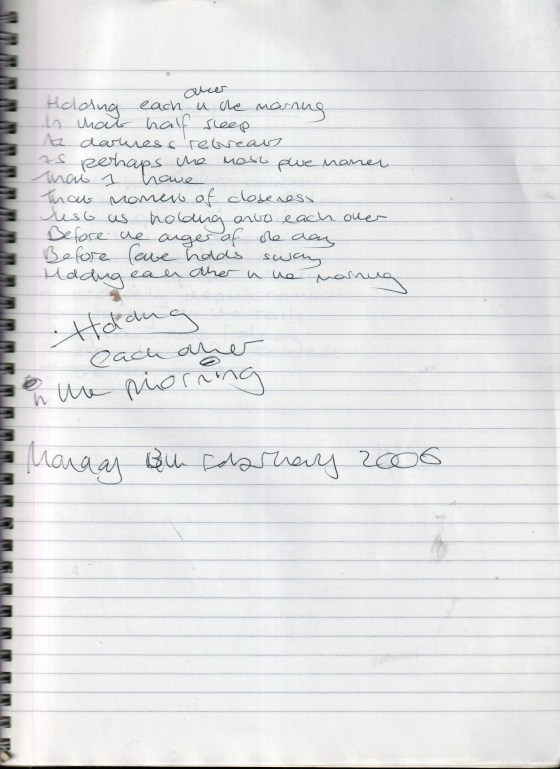 other
Holding each in the morning
In that half sleep
As darkness retreats
Is perhaps the most pure moment
That I have
That moment of closeness
Just us holding onto each other
Before the anger of the day
Before fate holds sway
Holding each other in the morning
Holding
each other
in the Morning
Monday 13th February 2006